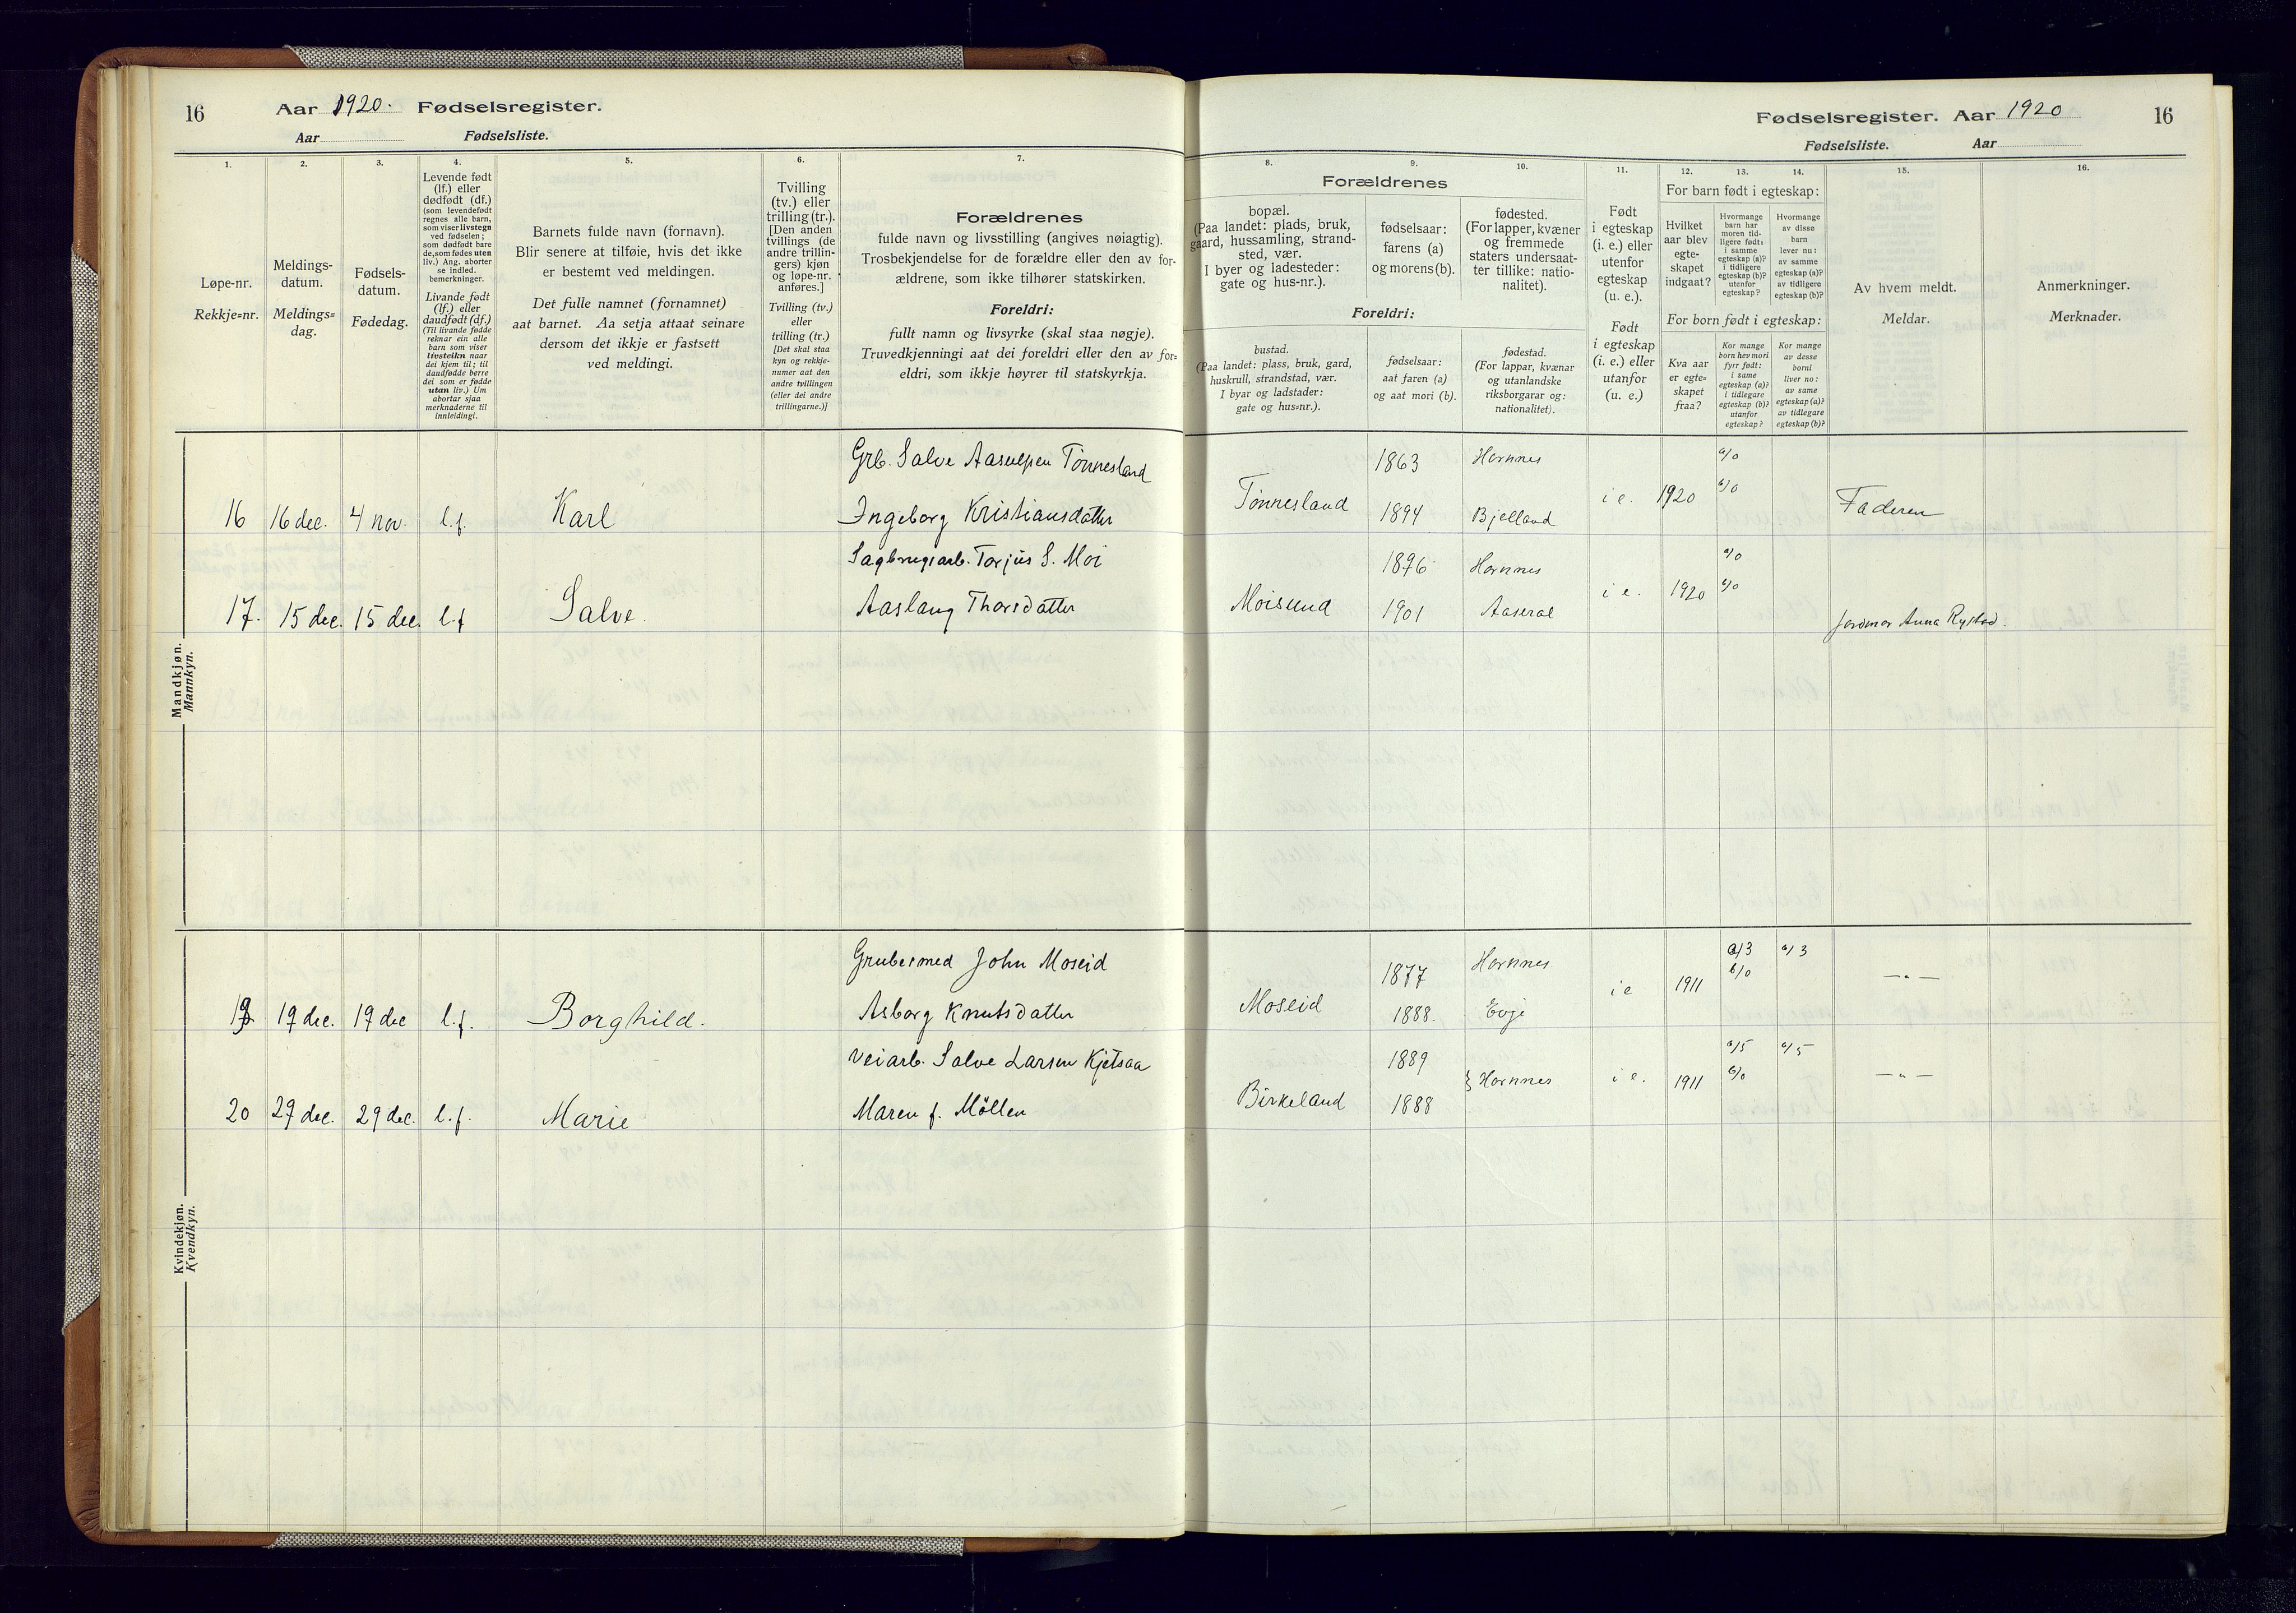 16
Aar 1920. Fødselsregister.
Aar Fødselsliste.
1.
2.
3.
4.
5.
6.
7.
Løpe-nr.
Rekkje=nr.
Meldings-
datum.
Meldings=
dag.
Fødsels-
datum.
Fødedag.
Levende født
(lf.) eller
dødfødt (df.)
(som levendefødt
regnes alle barn,
som viser livstegn
ved fødselen;
som dødfødt bare
de, som fødes uten
liv.) Ang. aborter
se indled.
bemerkninger.
Livande født
(lf.) eller
daudfødt (df.)
(Til livande fødde
reknar ein alle
barn som viser
livsteikn naar
dei kjem til; til
daudfødde berre
dei som er fødde
utan liv.) Um
abortar sjaa
merknaderne til
innleidingi.
Barnets fulde navn (fornavn).
Blir senere at tilføie, hvis det ikke
er bestemt ved meldingen.
Det fulle namnet (fornamnet)
aat barnet. Aa setja attaat seinare
dersom det ikkje er fastsett
ved meldingi.
Tvilling
(tv.) eller
trilling (tr.).
[Den anden
tvillings (de
andre trillin-
gers) kjøn
og løpe-nr.
anføres.]
Tvilling (tv.)
eller
trilling (tr.)
[Det skal staa
kyn og rekkje-
numer aat den
andre tvillingen
(eller dei andre
trillingarne.)]
Forældrenes
fulde navn og livsstilling (angives nøiagtig).
Trosbekjendelse for de forældre eller den av for-
ældrene, som ikke tilhører statskirken.
Foreldri:
fullt namn og livsyrke (skal staa nøgje).
Truvedkjenningi aat dei foreldri eller den av for=
eldri, som ikkje høyrer til statskyrkja.
Mandkjøn.
Mannkyn.
Grb. Salve Aasulfsen Tönnesland
16 16 dec. 4 nov. l.f. Karl Ingeborg Kristiansdatter
Sagbrugsarb. Torjus S. Moi
17. 15 dec. 15 dec. l.f Salve. Aaslaug Thorsdatter
Kvindekjøn.
Kvendkyn.
Grubesmed John Moseid
19 19 dec. 19 dec l.f. Borghild. Asborg Knutsdatter
Veiarb. Salve Larsen Kjetsaa
20 29 dec. 29 dec. l.f. Marie Maren f. Möllen
Fødselsregister. Aar 1920 16
Fødselsliste. Aar
8.
9.
10.
11.
12.
13.
14.
15.
16.
Forældrenes
bopæl.
(Paa landet: plads, bruk,
gaard, hussamling, strand-
sted, vær.
I byer og ladesteder:
gate og hus-nr.).
fødselsaar:
farens (a)
og morens (b).
fødested.
(For lapper, kvæner
og fremmede
staters undersaat-
ter tillike: natio-
nalitet).
Foreldri:
bustad.
(Paa landet: plass, bruk, gard,
huskrull, strandstad, vær.
I byar og ladstader:
gate og hus=nr.).
fødselsaar:
aat faren (a)
og aat mori (b).
fødestad.
(For lappar, kvænar
og utanlandske
riksborgarar og:
nationalitet).
Født
i egteskap
(i. e.) eller
utenfor
egteskap
(u. e.).
Født
i egteskap
(i. e.) eller
utanfor
(u. e.)
For barn født i egteskap:
Hvilket
aar blev
egte-
skapet
indgaat?
Hvormange
barn har
moren tid-
ligere født:
i samme
egteskap (a)?
i tidligere
egteskap (b)?
utenfor
egteskap?
Hvormange
av disse
barn
lever nu:
av samme
egteskap (a)?
av tidligere
egteskap (b)?
For born født i egteskap:
Kva aar
er egte=
skapet
fraa?
Kor mange
born hev mori
fyrr født:
i same
egteskap (a)?
i tidlegare
egteskap (b)?
utanfor
egteskap?
Kor mange
av desse
borni
liver no:
av same
egteskap (a)?
av tidlegare
egteskap (b)?
Av hvem meldt.
Meldar.
Anmerkninger.
Merknader.
1863 Hornnes a/0
Tönnesland 1894 Bjelland i e. 1920 b/0 Faderen
1896 Hornnes a/0
Moisund 1901 Aaseral i e. 1920 b/0 Jordmor Anna Rystad.
1877 Hornnes a/3 a/3
Moseid 1888. Evje i e 1911 b/0 — " —
1889 a/5 a/5
Birkeland 1888 } Hornnes i e. 1911 b/0 — " —